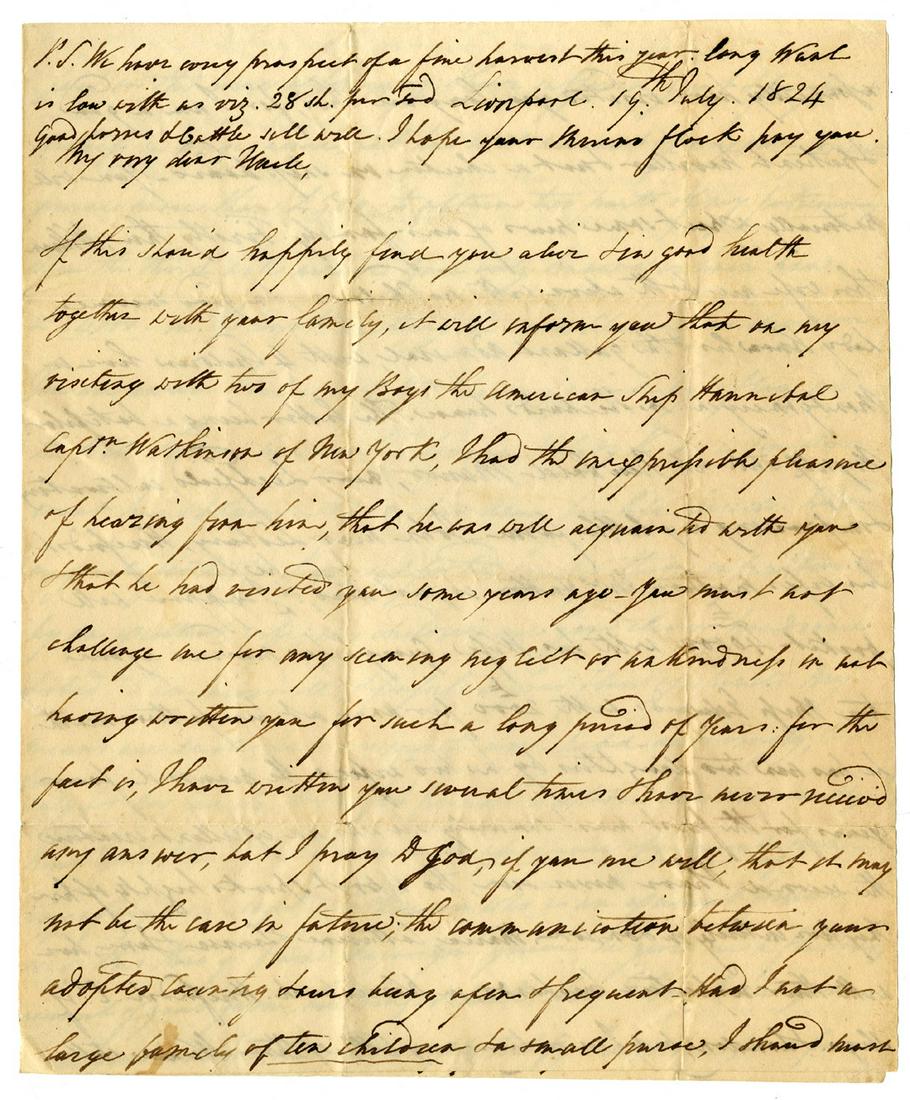 P.S. We have every prospect of a fine harvest this year. long Wool
is low with us viz. 28 sh. per Tod Liverpool. 19th. July. 1824
Good horses & Cattle sell well. I hope your Merino flock pay you.
My very dear Uncle,
If this shou'd happily find you alive & in good health
together with your family, it will inform you that on my
visiting with two of my Boys the American Ship Hannibal
Captn. Watkinson of New York, I had the inexpressible pleasure
of hearing from him, that he was well acquainted with you
& that he had visited you some years ago - You must not
challenge me for any seeming neglect or unkindness in not
having written you for such a long period of Years: for the
fact is, I have written you several times & have never receiv'd
any answer, but I pray to God, if you are well, that it may
not be the case in future; the communication between your
adopted Country & ours being open & frequent - Had I not a
large family of ten children & a small purse, I should most